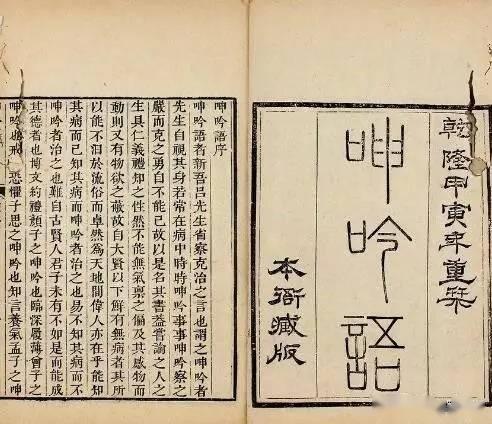 乾隆甲寅年重栞
呻吟語
本衙藏版
呻吟語序
呻吟語者新吾呂先生省察克治之言也謂之呻吟者
先生自視其身若常在病中時時呻吟事事呻吟察之
嚴而克之勇自不能已故以是名其書蓋嘗論之人之
生具仁義禮知之性然不能無氣禀之偏及其感物而
動則又有物欲之蔽故自大賢以下鮮有無病者其所
以能不汨於流俗而卓然為天地間偉人亦在乎能知
其病而已知其病而呻吟者治之也易不知其病而不
呻吟者治之也難自古賢人君子未有不如是而能成
其德者也博文約禮顏子之呻吟也臨深履薄曾子之
呻吟也戒恐懼子思之呻吟也知言養氣孟子之呻